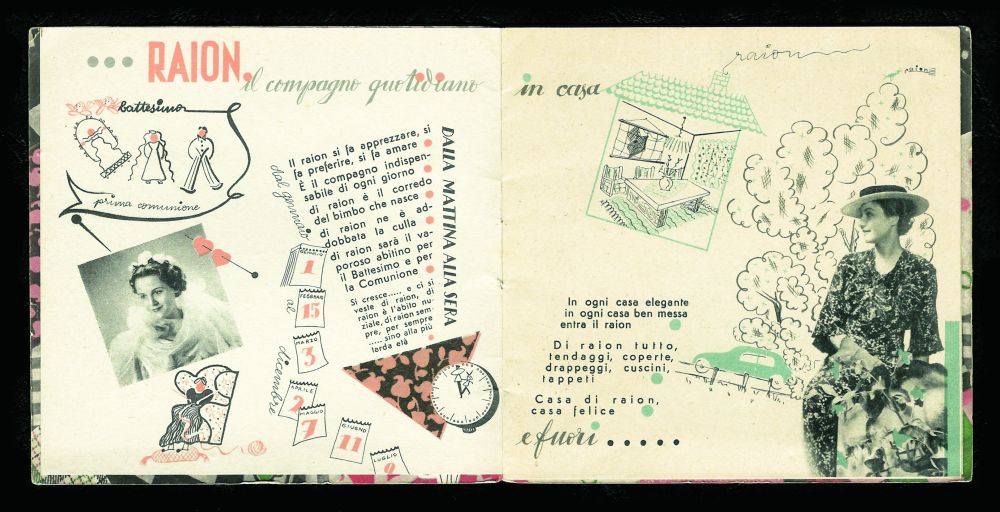 ... RAION,
il compagno quotidiano
battesimo
prima comunione
Il raion si fa apprezzare, si
fa preferire, si fa amare
È il compagno indispen-
sabile di ogni giorno
di raion è il corredo
del bimbo che nasce
di raion ne è ad-
dobbata la culla
di raion sarà il va-
poroso abitino e per
il Battesimo e per
la Comunione
Si cresce..... e ci si
veste di raion, di
raion è l'abito nu-
ziale, di raion sem-
pre, per sempre
..... sino alla più
tarda età
DALLA MATTINA ALLA SERA
dal gennaio
al
dicembre
1
FEBBRAIO
15
MARZO
3
APRILE
2
MAGGIO
7
GIUGNO
11
LUGLIO
9
in casa
raion
raion
In ogni casa elegante
in ogni casa ben messa
entra il raion
Di raion tutto,
tendaggi, coperte,
drappeggi, cuscini,
tappeti
Casa di raion,
casa felice
e fuori .....